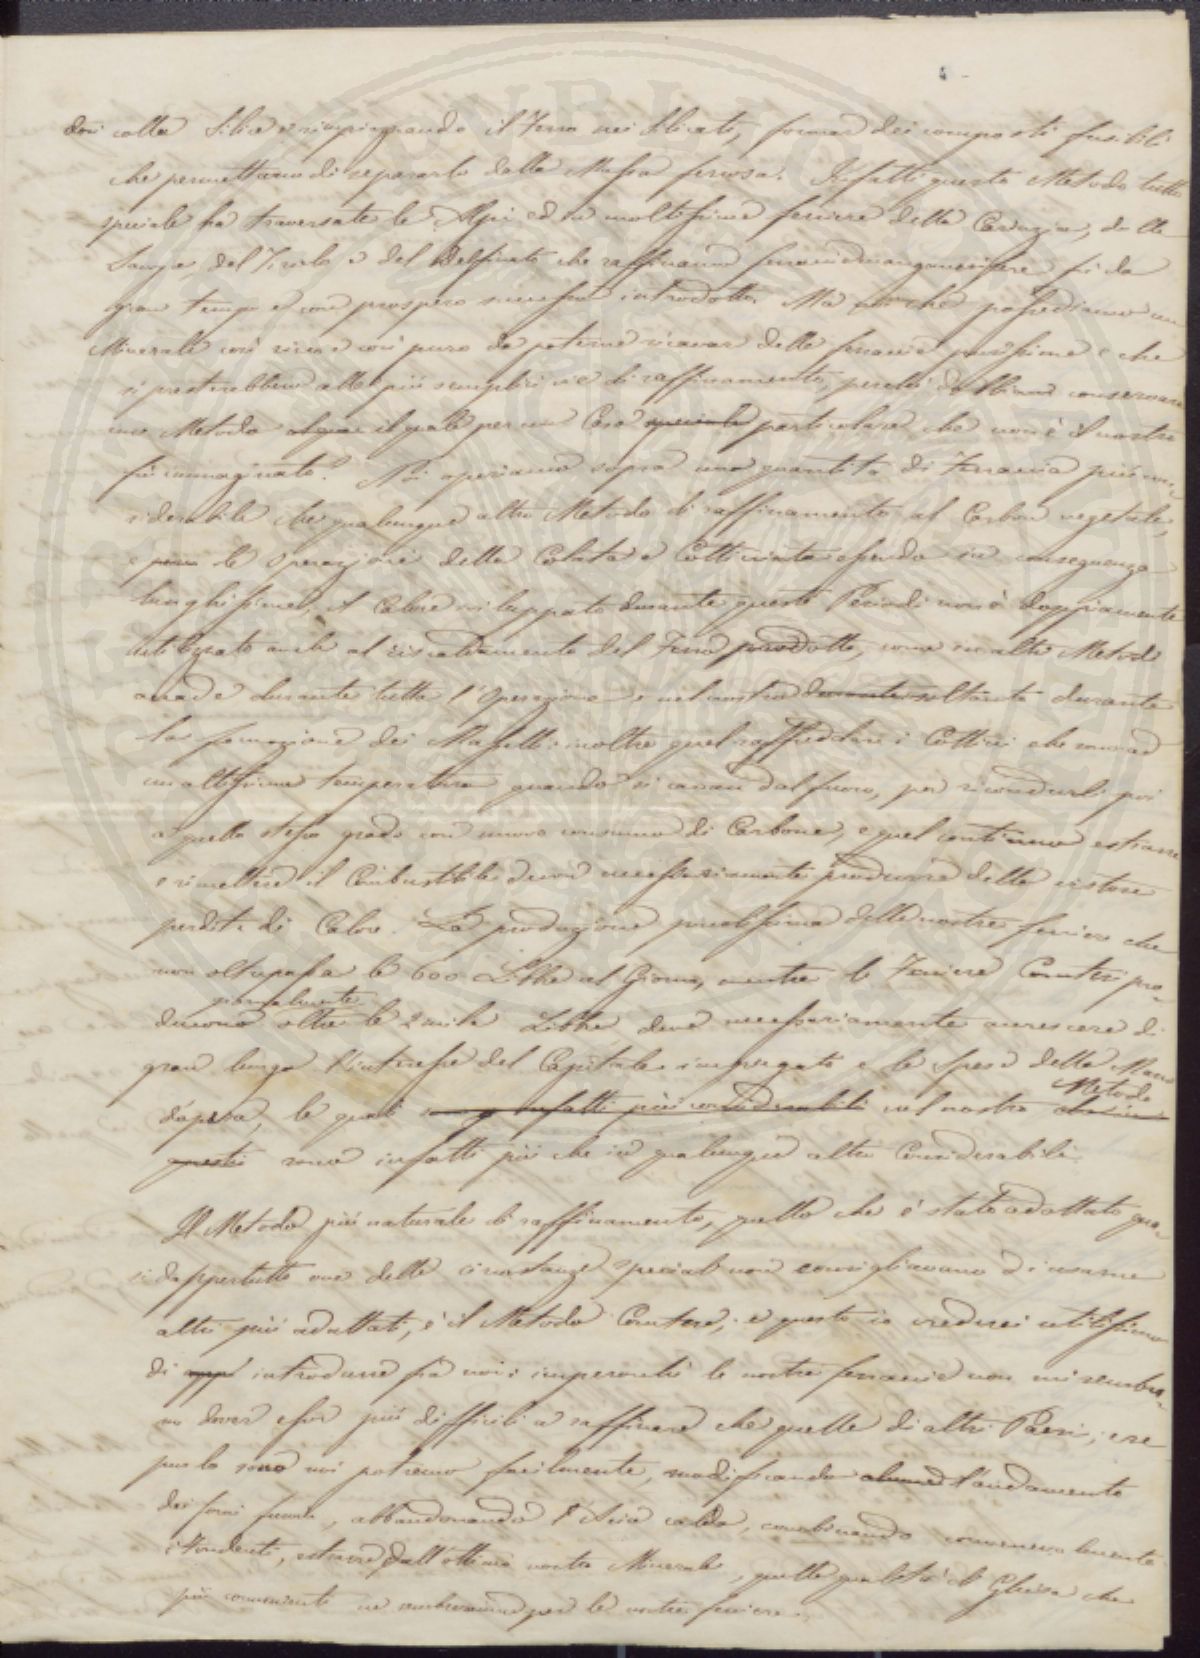 dosi colla Silice e rimpiazzando il Ferro nei Silicati, formar dei composti fusibili
che permettano di separarlo dalla Massa ferrosa. Infatti questo Metodo tutto
speciale ha traversate le Alpi ed in moltissime ferriere della Carinzia, della
Savoja, del Tirolo e del Delfinato che raffinano ferraccie manganesifere fù da
gran tempo e con prospero successo introdotto. Ma noi che possediamo un
Minerale così ricco e così puro da poterne ricavar delle ferraccie purissime e che
si presterebbero alle più semplici vie di raffinamento, perché dobbiamo conservare
un Metodo il quale per un Caso speciale particolare che non è il nostro
fù immaginato? Noi operiamo sopra una quantità di Ferraccia più con-
siderabile che qualunque altro Metodo di raffinamento al Carbon vegetale,
e le Operazioni della Colata e Cotticciata essendo in conseguenza
lunghissime, il Calore sviluppato durante questi Periodi non è doppiamente
utilizzato anche al riscaldamento del Ferro prodotto, come in altri Metodi
accade durante tutta l'Operazione e nel nostro durante soltanto durante
la formazione dei Masselli: inoltre quel raffreddare i Cotticci che sono ad
un altissima temperatura quando si cavan dal fuoco, per ricondurli poi
a quello stesso grado con nuovo consumo di Carbone, e quel continuo estrarre
e rimettere il Combustibile devon necessariamente produrre delle vistose
perdite di Calore. La produzione piccolissima delle nostre ferriere che
non oltrepassa le 600 Libbre al Giorno, mentre le Ferriere Comtesi pro-
giornalmente
ducono oltre le 2 mila Libbre deve necessariamente accrescere di
gran lunga l'interesse del Capitale impiegato e le Spese della Mano
Metodo
d'opera, le quali infatti più considerabili nel nostro
questi sono infatti più che in qualunque altro Considerabili.
Il Metodo più naturale di raffinamento, quello che è stato adottato qua-
si dappertutto ove delle circostanze speciali non consigliavano di usarne
altri più adattati, è il Metodo Comtese; e questo io crederei utilissimo
di introdurre frà noi: imperocché le nostre ferraccie non mi sembra-
no dover esser più difficili a raffinare che quelle di altri Paesi; e se
pur lo sono noi potremo facilmente, modificando l'andamento
dei forni fusori, abbandonando l'Aria calda, combinando convenevolmente
i Fondenti, estrarre dall'ottimo nostro Minerale, quelle qualità di Ghisa che
più convenienti ne sembreranno per le nostre ferriere.